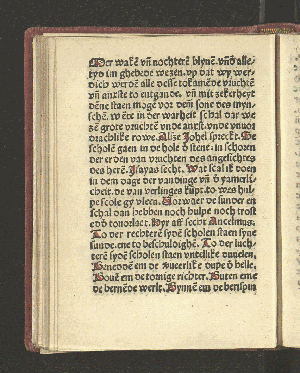 Mer wakē vñ nochterē blyuē. vñd alle
tyd im ghebede wezen. vp dat wy wer-
dich werdē alle desse tokamēde vruchtē
vñ anxste to entgande. vñ mit zekerheyt
dēne staen moge vor dem sone des myn-
schē. wēte in der warheit schal dar we
zē grote vruchtē vnde anxst. vnde vnuor
drachlike rowe. Alze Johel spreckt. Se
scholē gaen in de hole d stene. in schoren
der erden van vruchten des angesichtes
des herē. Isayas secht. Wat scal ik doen
in deme dage der vandinge vñ d yameri-
cheit. de van verlinges kūpt. to wes hul-
pe scole gy vleen. Vorwaer de sunder en
schal dan hebben noch hulpe noch trost
edd toeuorlaet. Hyr aff secht Ancelmus.
To der rechterē sydē scholen staen syne
sunde. ene to beschuldighē. To der luch-
terē sydē scholen staen vntellike duuelen.
Benedden em de vuerlike dupe d helle.
Bouē em de tornige richter. Buten eme
de bernēde werlt. Bynnē em de bernēn